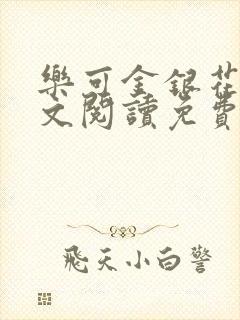 樂可金銀花
文閱讀免費
飛天小白警